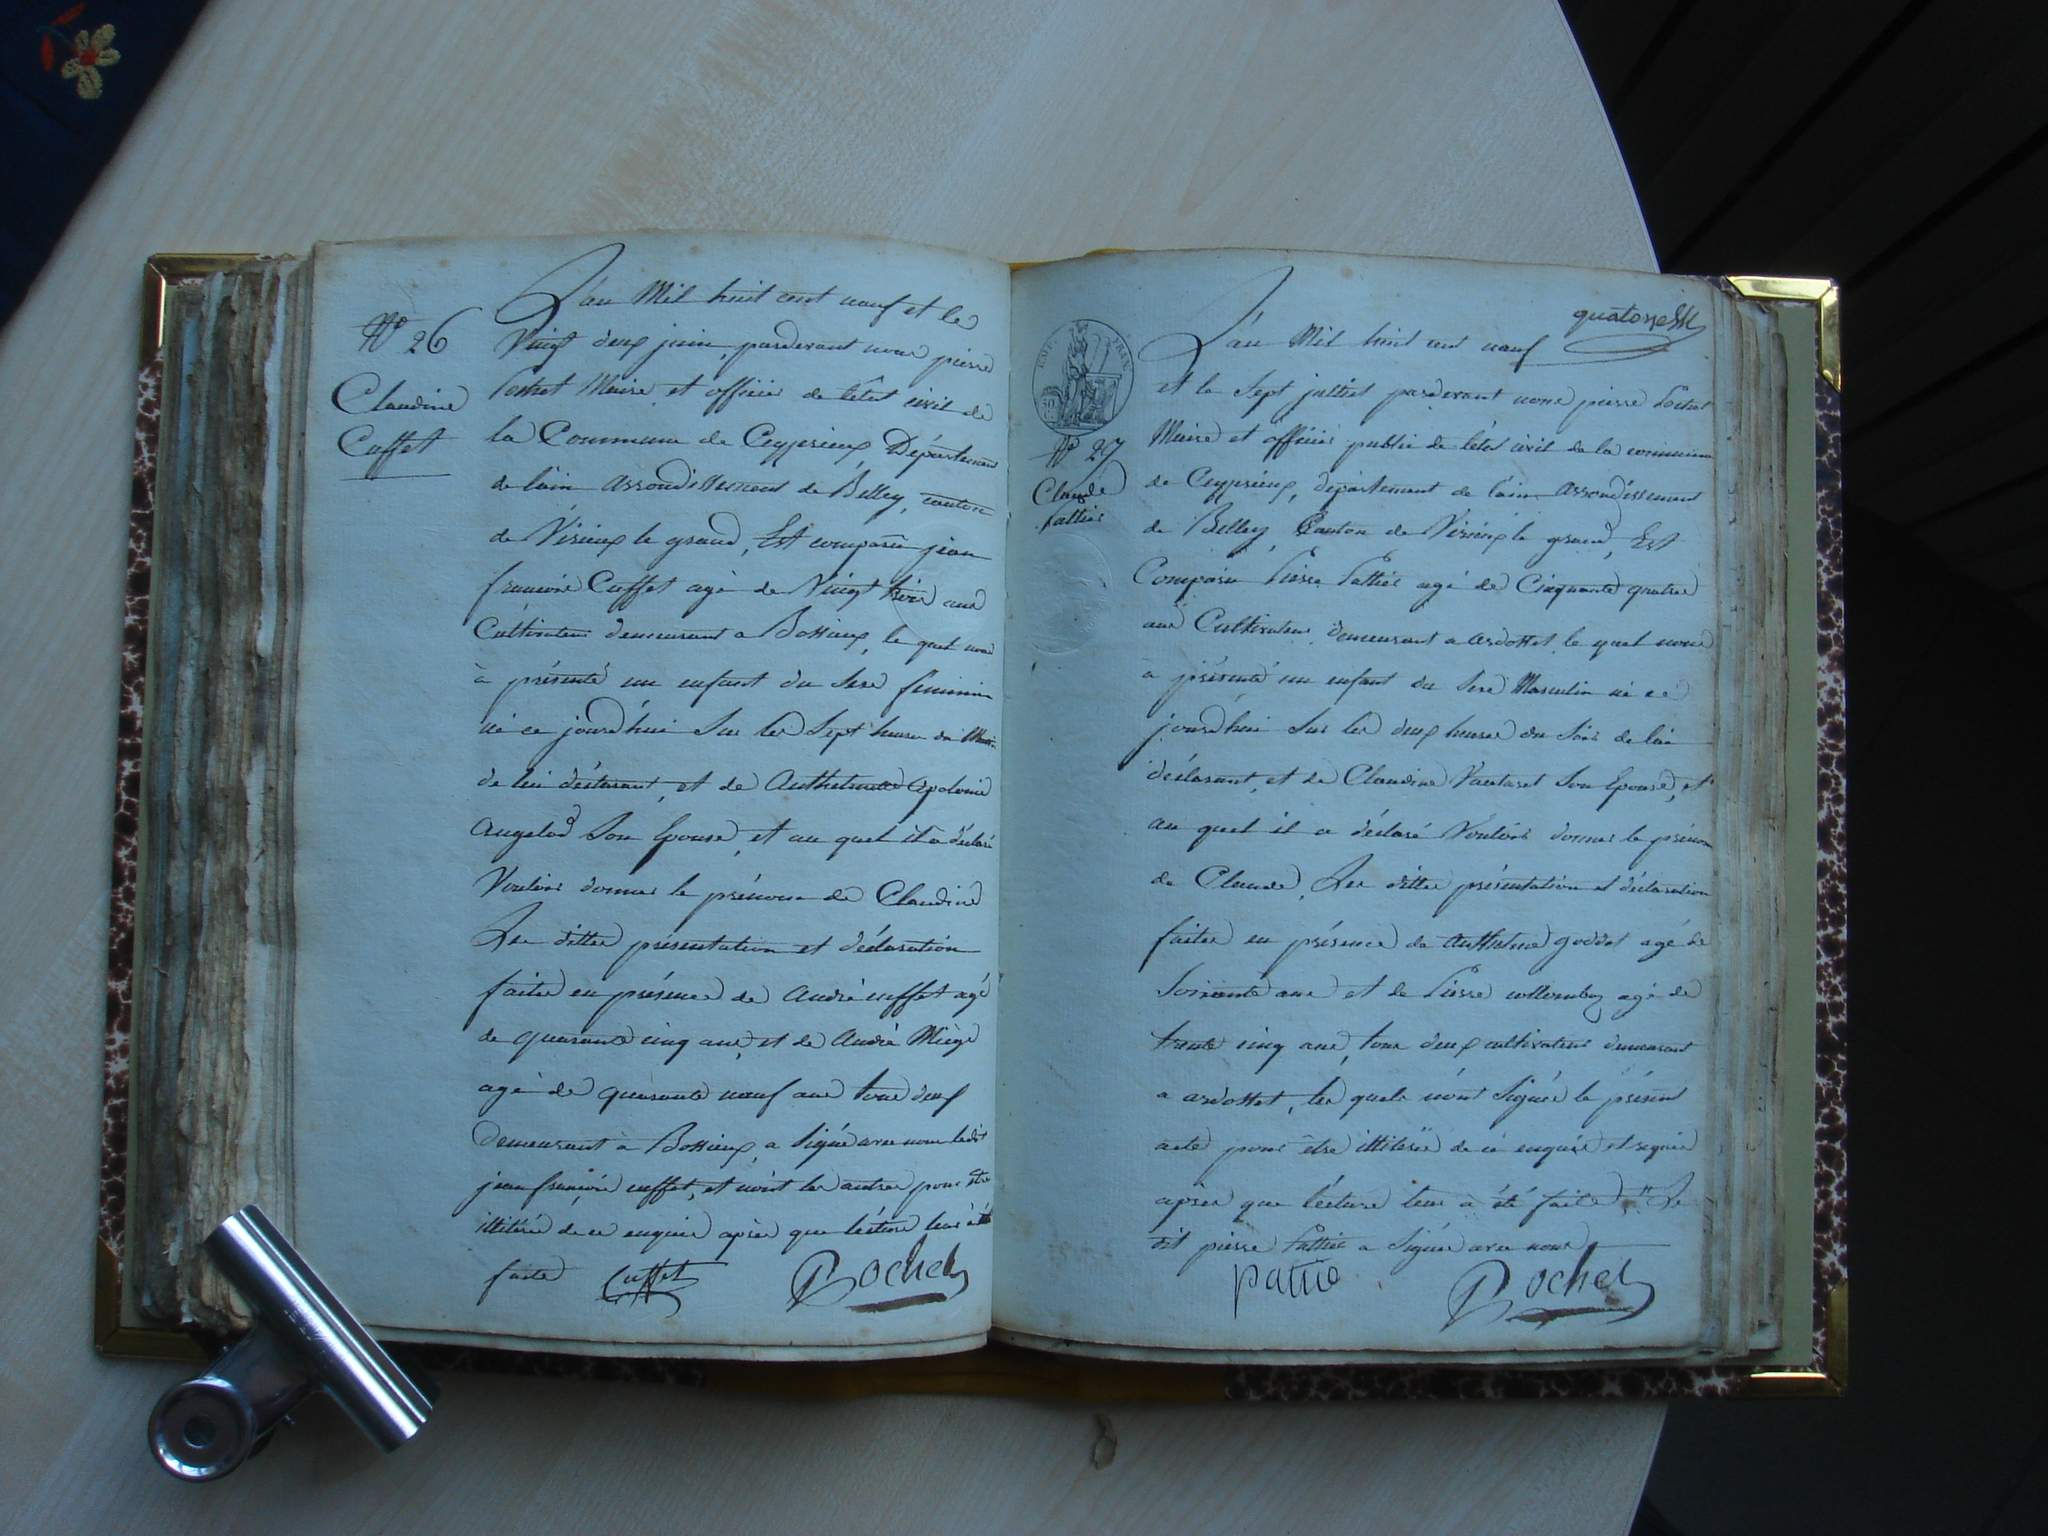 N° 26
Claudine
Cuffet
L'an Mil huit cent neuf et le
Vingt deux juin, pardevant nous pierre
Pochet Maire et officier de l'état civil de
la Commune de Ceyzerieux, Département
de l'ain arrondissement de Belley, canton
de Virieux le grand, Est comparu jean
françois Cuffet agé de Vingt trois ans
Cultivateur demeurant a Bossieux, le quel nous
à présenté un enfant du sexe feminin
né ce jourd'hui sur les sept heures du Matin
de lui déclarant, et de Anthelmette Apolonie
Angelod son Epouse, et au quel il a déclaré
Vouloir donner le prénom de Claudine
Les dittes présentation et déclaration
faites en présence de André cuffet agé
de quarante cinq ans, et de André Miège
agé de quarante neuf ans tous deux
Demeurant à Bossieux, a signé avec nous ledit
jean françois cuffet, et nont les autres pour être
illitéré de ce enquis après que lecture leur a été
faite Cuffet Pochet
quatorze
L'an Mil huit cent neuf
et le sept juilliet pardevant nous pierre Pochet
N° 27
Claude
Pattier
Maire et officier public de l'état civil de la commune
de Ceyzerieux, département de l'ain arrondissement
de Belley, Canton de Virieux le grand, Est
Comparu Pierre Pattier agé de Cinquante quatre
ans Cultivateur demeurant a ardosset le quel nous
à présenté un enfant du sexe Masculin né ce
jourd'hui sur les deux heures du soir de lui
déclarant, et de Claudine Vautaret son Epouse, et
au quel il a déclaré Vouloir donner le prénom
de Claude, Les dittes présentation et déclaration
faites en présence de Anthelme goddet agé de
soixante ans et de Pierre collomby agé de
trente cinq ans, tous deux cultivateurs demeurant
a ardosset, les quels n'ont signés le présent
acte pour être illiterés de ce enquis et requis
après que lecture leur a été faite, Le
dit pierre Pattier a signé avec nous
pattie Pochet